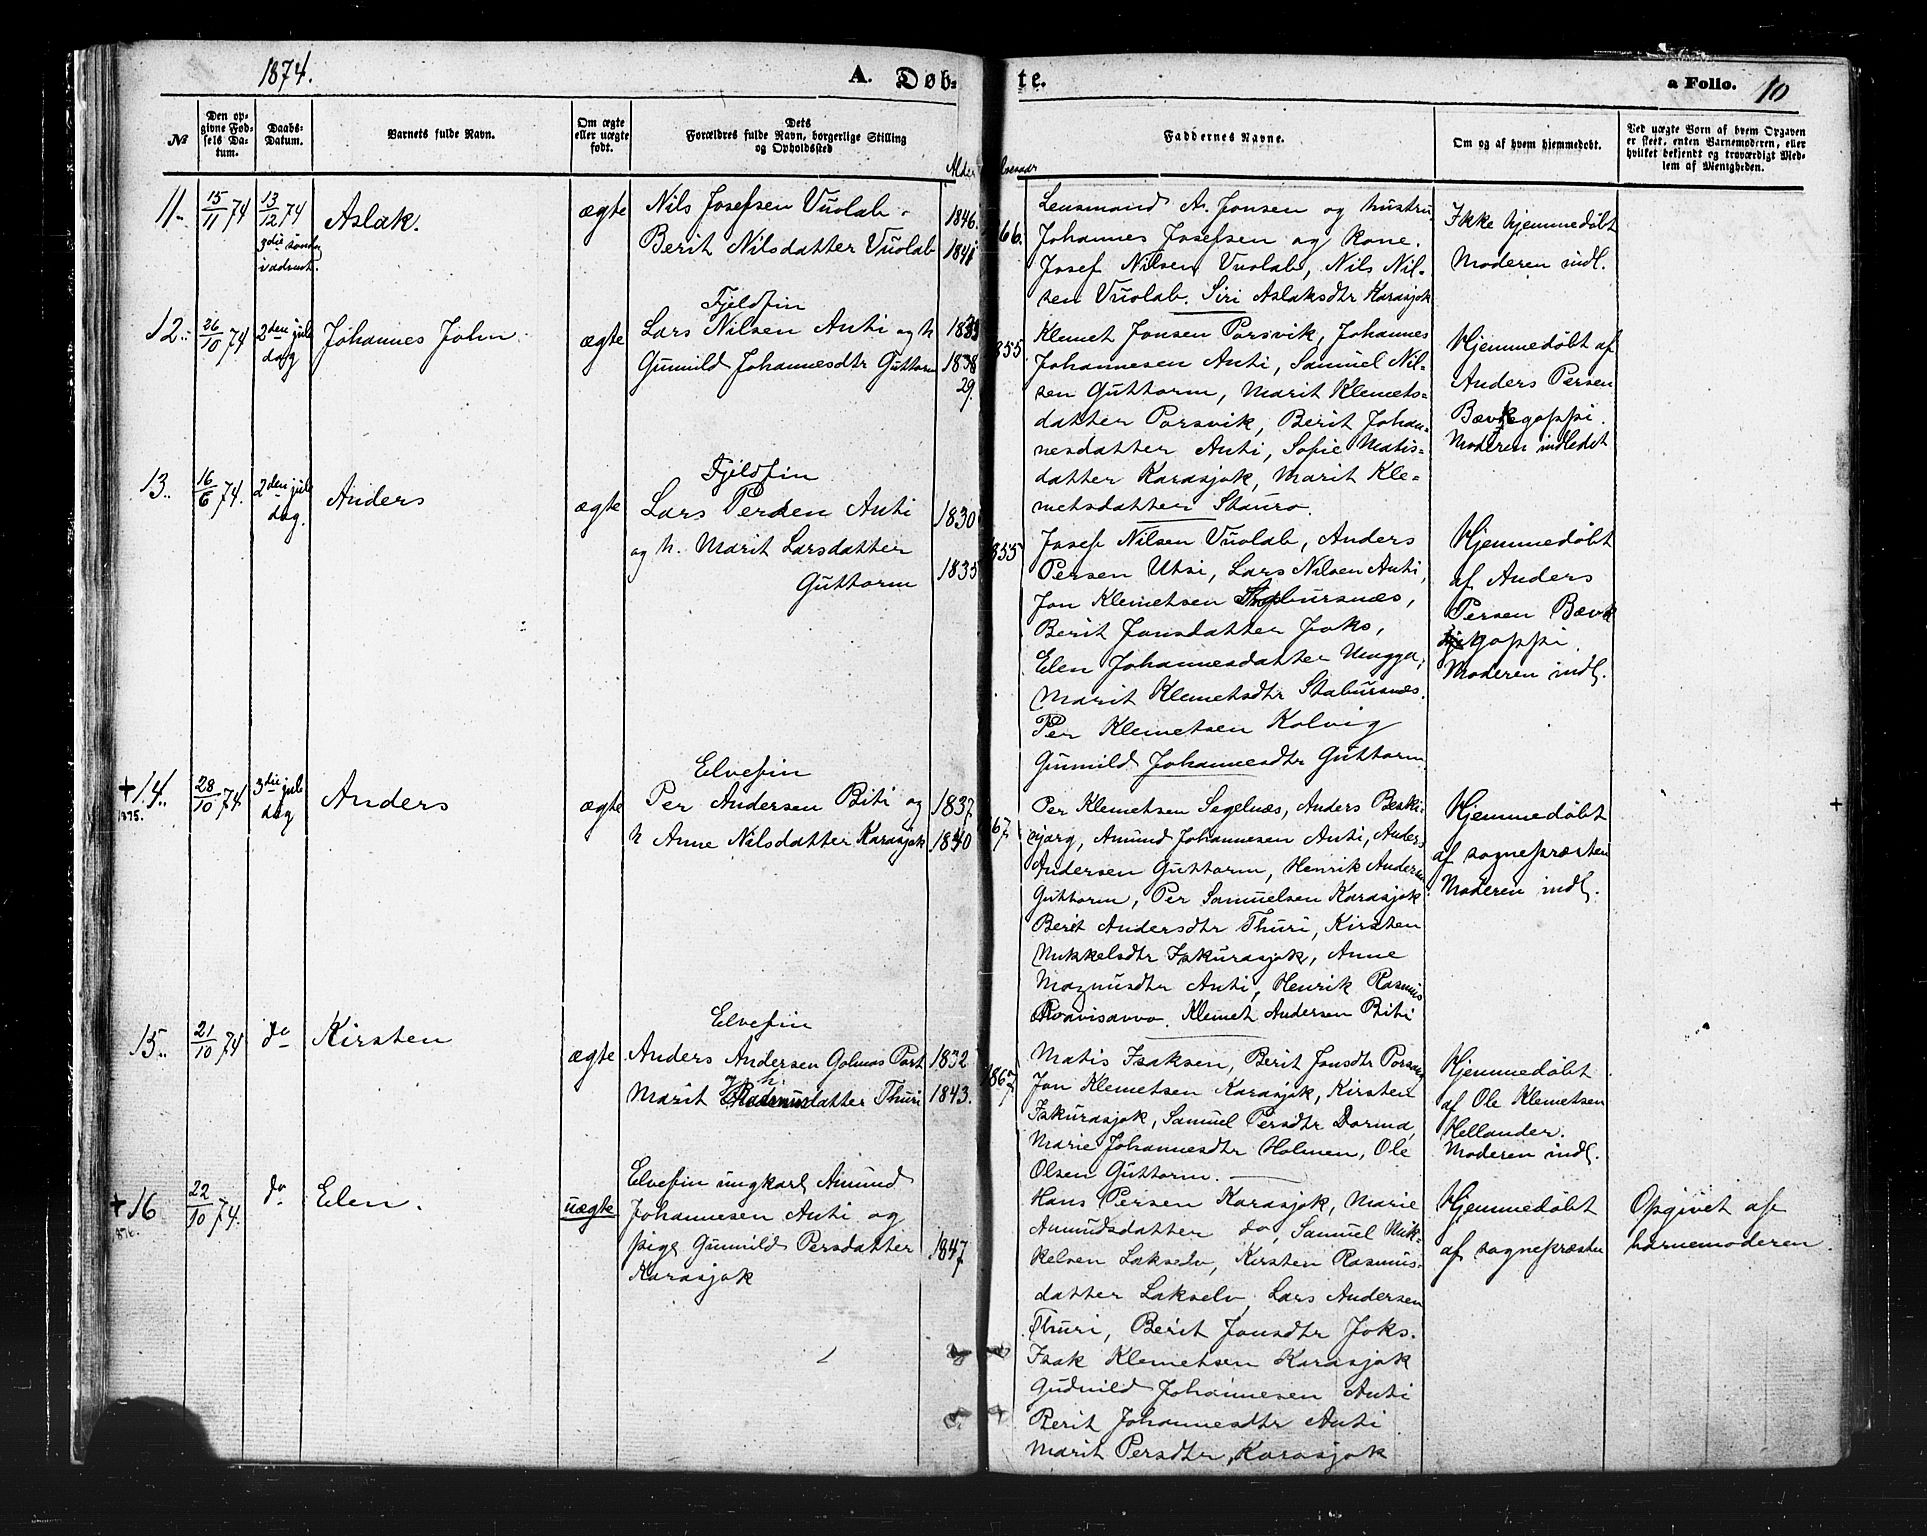 1874.
A. Døb-
te.
a Folio. 10
No
Den op-
givne Fød-
sels Da-
tum.
Daabs-
Datum.
Barnets fulde Navn.
Om ægte
eller uægte
født.
Dets
Forældres fulde Navn, borgerlige Stilling
og Opholdssted
Alder
Faddernes Navne.
Om og af hvem hjemmedøbt.
Ved uægte Børn af hvem Opgaven
er skeet, enten Barnemoderen, eller
hvilket bekjendt og troværdigt Med-
lem af Menigheden.
11. 15/11 74 13/12 74
3die søndag
i advent.
Aslak.
ægte
Nils Josefsen Vuolab. 1846.
Berit Nilsdatter Vuolab 1841
66.
Lensmand A. Jonsen og hustru
Johannes Josefsen og kone.
Josef Nilsen Vuolab, Nils Nil-
sen Vuolab. Siri Aslaksdtr Karasjok
Ikke hjemmedøbt
Moderen indl.
12. 26/10 74 2den jule
dag
Johannes John
ægte
Fjeldfin
Lars Nilsen Anti og h 1833
Gunnild Johannesdtr Guttorm 1838
29.
855
Klemet Jonsen Porsvik, Johannes
Johannesen Anti, Samuel Nil-
sen Guttorm, Marit Klemets-
datter Porsvik, Berit Johan-
nesdatter Anti, Sofie Matis-
datter Karasjok, Marit Kle-
metsdatter Stauro.
Hjemmedøbt af
Anders Persen
Bævkegoppi.
Moderen indledet
13. 16/6 74. 2den jule
dag.
Anders
ægte
Fjeldfin
Lars Persen Anti 1830
og h. Marit Larsdatter
Guttorm 1835
855
Josef Nilsen Vuolab, Anders
Persen Utsi, Lars Nilsen Anti,
Jon Klemetsen Stabursnæs,
Berit Jonsdatter Joks,
Elen Johannesdatter Magga,
Marit Klemetsdtr Stabursnæs.
Per Klemetsen Kolvig
Gunnild Johannesdtr Guttorm
Hjemmedøbt
af Anders
Persen Bævk
goppi.
Moderen indl.
+ 14. 28/10 74 3die jule
dag
1875.
Anders
ægte
Elvefin
Per Andersen Biti og 1837.
h Anne Nilsdatter Karasjok 1840
67
Per Klemetsen Segelnæs, Anders Beski-
njarg, Amund Johannesen Anti, Anders
Andersen Guttorm, Henrik Andersen
Guttorm, Per Samuelsen Karasjok
Berit Andersdtr Thuri, Kirsten
Mikkelsdtr Iskurasjok, Anne
Magnusdtr Anti, Henrik Rasmus
Roavisavvo. Klemet Andersen Biti
Hjemmedøbt
af sognepræsten
Moderen indl.
+
15. 21/10 74 do
Kirsten
ægte
Elvefin
Anders Andersen Golmas Port 1832
og h.
Marit Rasmusdatter Thuri 1843.
1867
Matis Isaksen, Berit Jonsdtr Porsang
Jon Klemetsen Karasjok, Kirsten
Iskurasjok, Samuel Persdtr Dorma,
Marie Johannesdtr Holmen, Ole
Olsen Guttorm.
Hjemmedøbt
af Ole Klemetsen
Hellander.
Moderen indl.
+ 16 22/10 74. do
Elen.
uægte
Elvefin ungkarl Amund
Johannesen Anti og
pige Gunnild Persdatter 1847.
Karasjok
Hans Persen Karasjok, Marie
Amundsdatter do, Samuel Mik-
kelsen Lakselv, Kirsten Rasmus-
datter Lakselv, Lars Andersen
Thuri, Berit Jonsdtr Joks.
Isak Klemetsen Karasjok
Gudnild Johannesen Anti
Berit Johannesdtr Anti
Marit Persdtr, Karasjok
Hjemmedøbt
af sognepræsten
Opgivet af
barnemoderen.